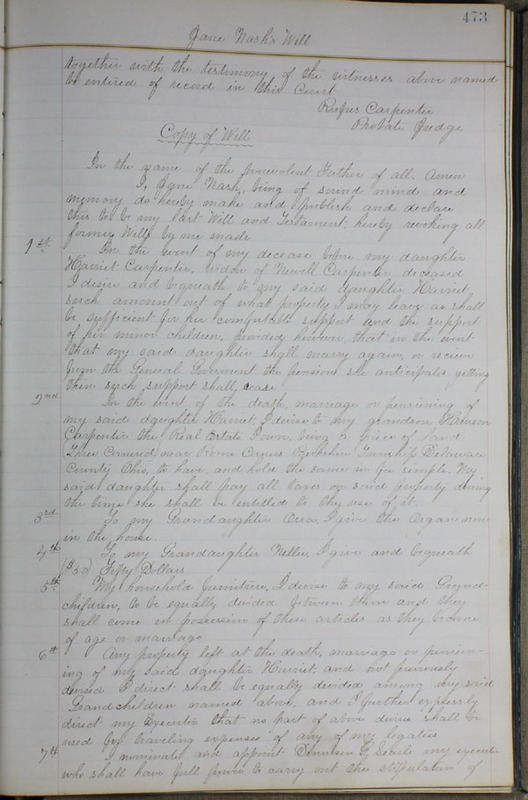 473
Jane Nash's Will
together with the testimony of the witnesses above named
be entered of record in this Court
Rufus Carpenter
Probate Judge
Copy of Will
In the name of the benevolent Father of all. Amen
I, Jane Nash, being of sound mind and
memory do hereby make and publish and declare
this to be my last Will and Testament, hereby revoking all
former Wills by me made
1st In the event of my decease before my daughter
Harriet Carpenter, widow of Newell Carpenter deceased
I desire and bequeath to my said daughter Harriet,
such amount out of what property I may leave as shall
be sufficient for her comfortable support and the support
of her minor children, Provided however, that in the event
that my said daughter shall marry again, or receive
from the General Government the pension she anticipates getting
then such support shall cease
2nd In the event of the death, marriage or pensioning of
my said daughter Harriet, I devise to my grandson Harison
Carpenter the Real Estate I own, being a piece of land
near Rome Corners Berkshire Township Delaware
County Ohio, to have and hold the same in fee simple. My
said daughter shall pay all taxes on said property during
the time she shall be entitled to the use of it.
3rd To my Grandaughter Orra, I give the Organ now
in the house.
4th To my Grandaughter Nellie, I give and bequeath
$50 Fifty Dollars
5th My household furniture, I devise to my said Grand-
children, to be equally divided between them and they
shall come in possession of these articles as they become
of age or marriage
6th Any property left at the death, marriage or pension-
ing of my said daughter Harriet, and not previously
devised I direct shall be equally divided among my said
Grandchildren named above, and I further expressly
direct my Executor that no part of above devise shall be
used for traveling expenses of any of my legatees
7th I nominate and appoint my executor
who shall have full power to carry out the stipulation of